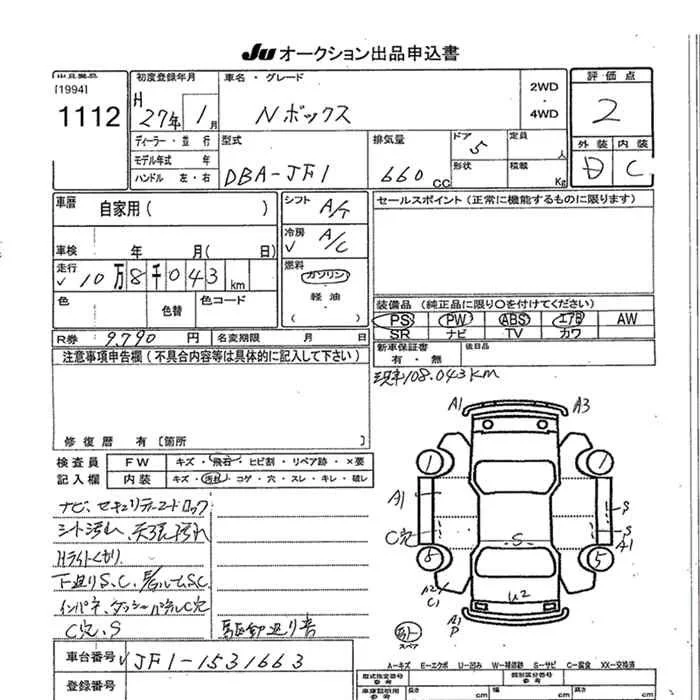 Ju オークション出品申込書
[1994]
1112
初度登録年月
H 27年 1月
車名・グレード
Nボックス
2WD
・
4WD
評価点
2
ディーラー・並行
モデル年式 年
ハンドル 左・右
型式
DBA-JF1
排気量
660 cc
ドア 5
形状
定員 人
積載 Kg
外装 内装
D C
車歴 自家用( )
車検 年 月( 日)
走行
✓ 10万8千043km
色
色替
色コード
シフト A/T
冷房 ✓ A/C
燃料
ガソリン
・
軽油
セールスポイント(正常に機能するものに限ります)
装備品(純正品に限り○を付けてください)
PS PW ABS エアB AW
SR ナビ TV カワ
R券 9,790円 名変期限 月 日
新車保証書
有・無
後日品
注意事項申告欄(不具合内容等は具体的に記入して下さい)
現車108.043km
修復歴 有〔箇所 〕
検査員
記入欄
FW キズ・飛石・ヒビ割・リペア跡・×要
内装 キズ・汚れ・コゲ・穴・スレ・キレ・破レ
ナビ、セキュリティーコードロック
シート汚れ、天張汚れ
Hライトくもり
下廻りS、C、
C穴、S
駆動廻り音
A1 A3
1 1
A1
C穴
S
S
S
A1
5 5
A2
C1
U2
A1
P
スペア
A-キズ E-エクボ U-凹み W-補修跡 S-サビ C-腐食 XX-交換済
車台番号 ✓ JF1-1531663
登録番号
型式指定番号
参考
類別区分番号
参考
車庫証明用
参考
長さ cm
幅 cm
高さ cm